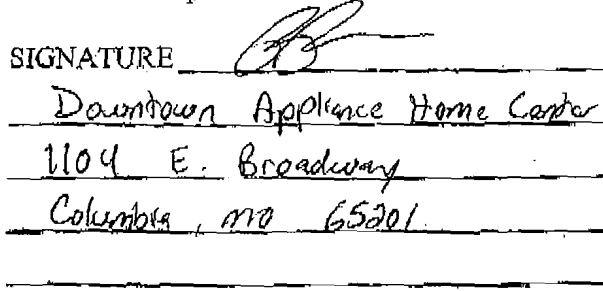 SIGNATURE
Downtown Appliance Home Center
1104 E. Broadway
Columbia, mo 65201